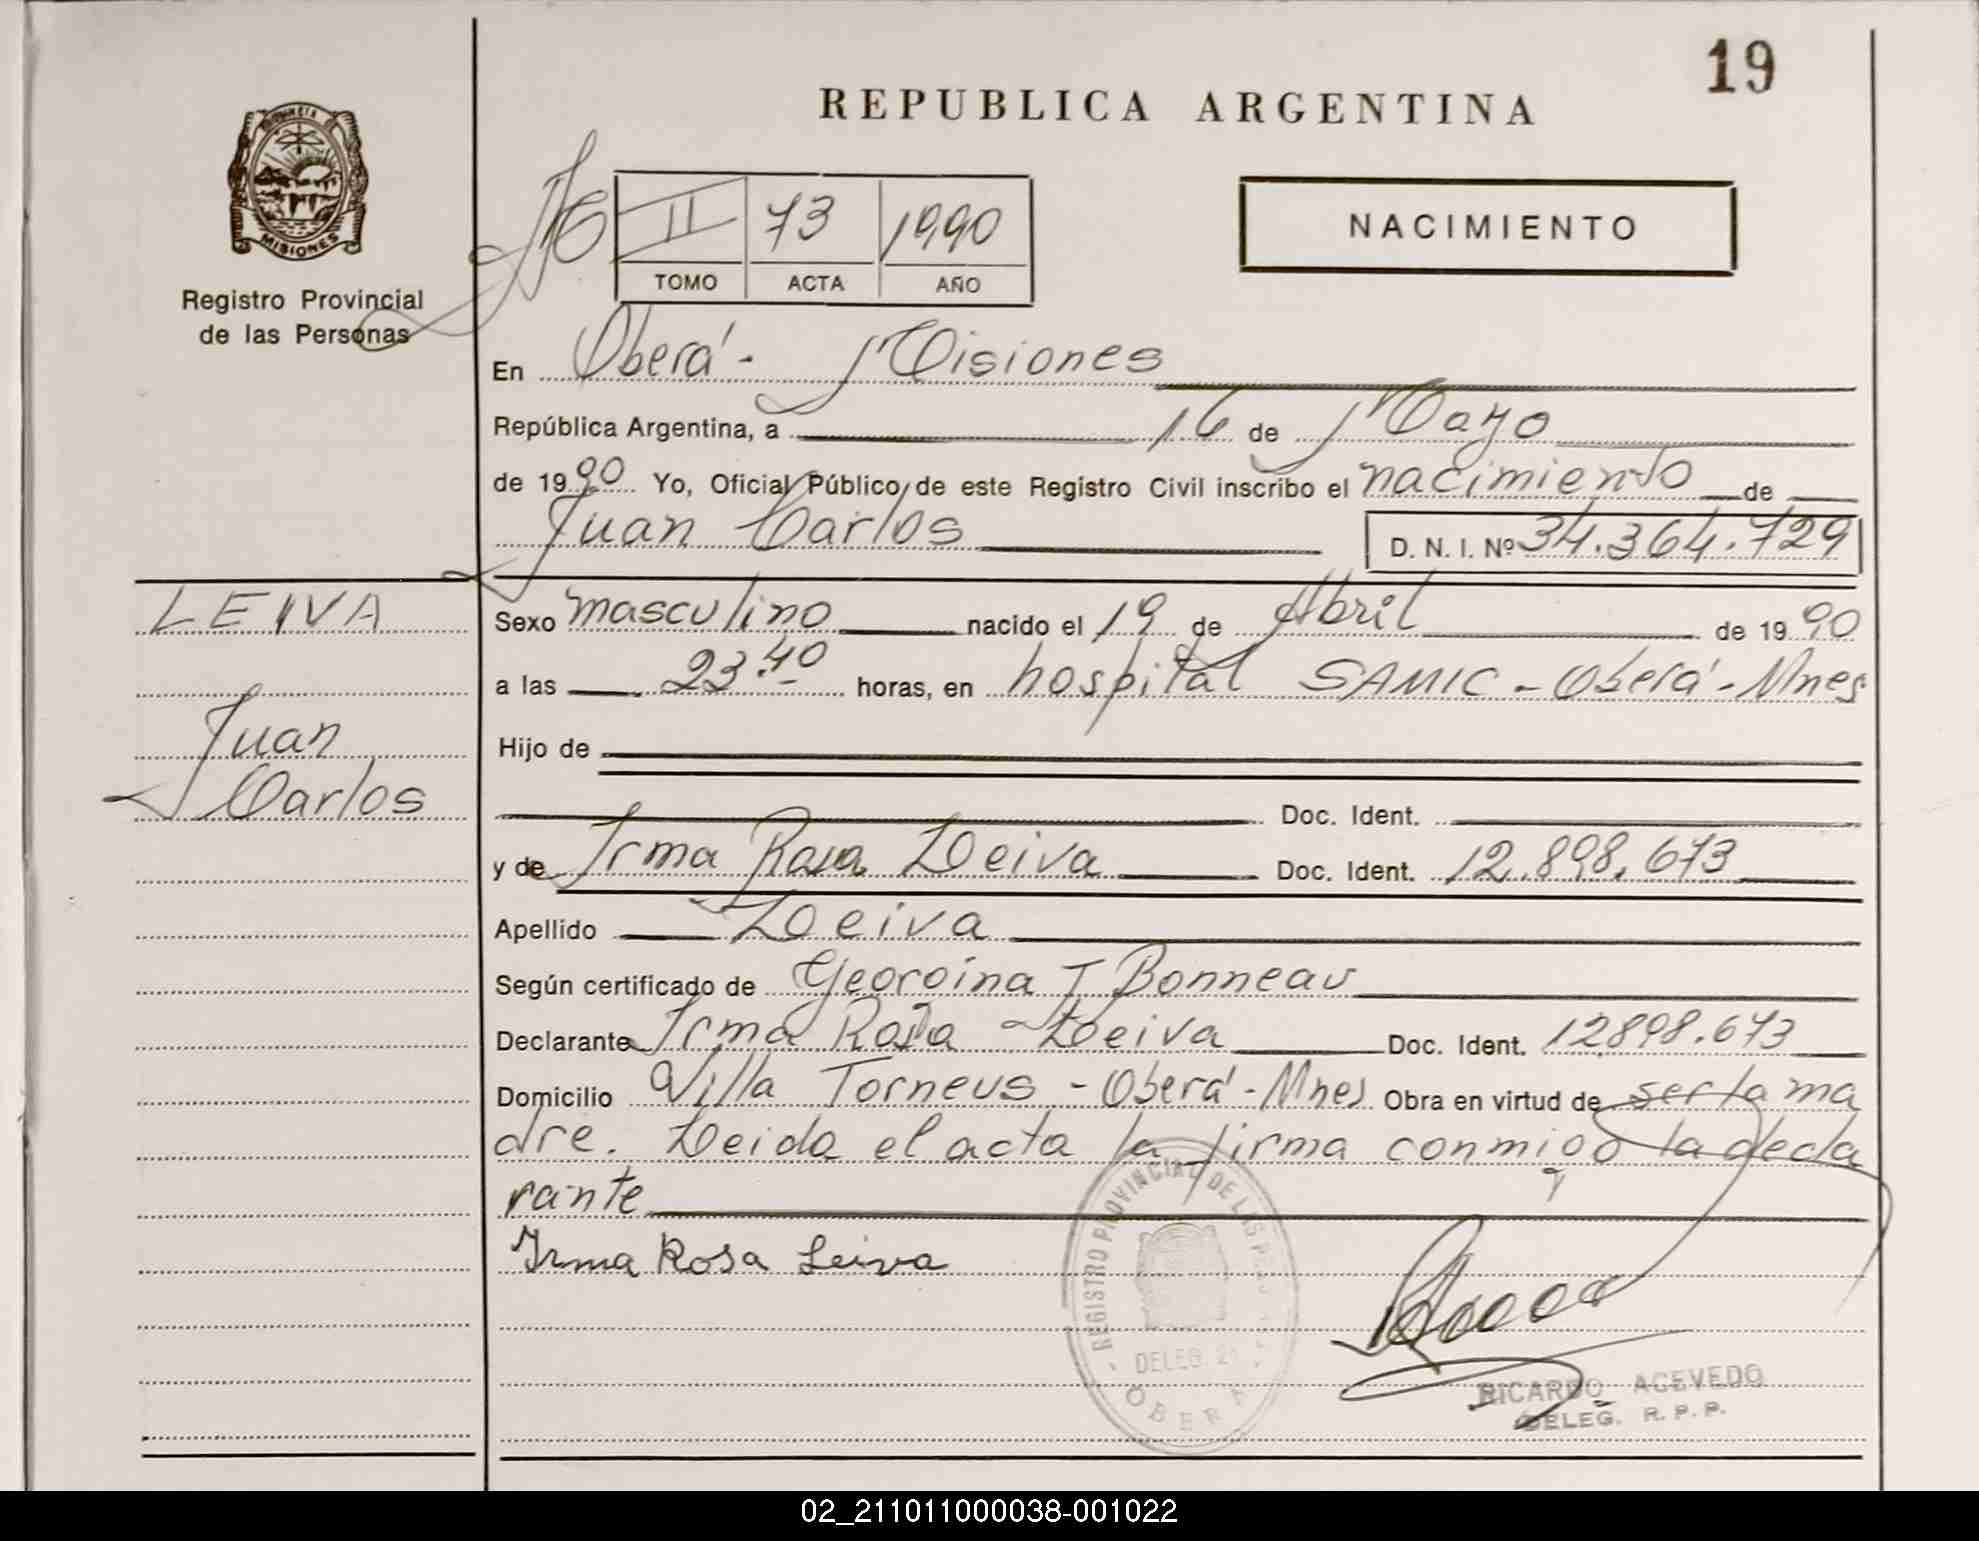 19
REPUBLICA ARGENTINA
MISIONES
Registro Provincial
de las Personas
II 73 1990
TOMO ACTA AÑO
NACIMIENTO
En Oberá - Misiones
República Argentina, a 16 de Mayo
de 1990 Yo, Oficial Público, de este Registro Civil inscribo el nacimiento de
Juan Carlos D. N. I. Nº 34.364.729
LEIVA
Juan
Carlos
Sexo masculino nacido el 19 de Abril de 1990
a las 23.40 horas, en hospital SAMIC - Oberá - Mnes
Hijo de
Doc. Ident.
y de Irma Rosa Leiva Doc. Ident. 12.898.673
Apellido Leiva
Según certificado de Georgina T Bonneau
Declarante Irma Rosa Leiva Doc. Ident. 12898.673
Domicilio Villa Torneus - Oberá - Mnes Obra en virtud de ser la ma
dre. Leida el acta la firma conmigo la decla
rante
Irma Rosa Leiva
REGISTRO PROVINCIAL DE LAS
DELEG. 21
OBERA
RICARDO ACEVEDO
DELEG. R. P. P.
02_211011000038-001022